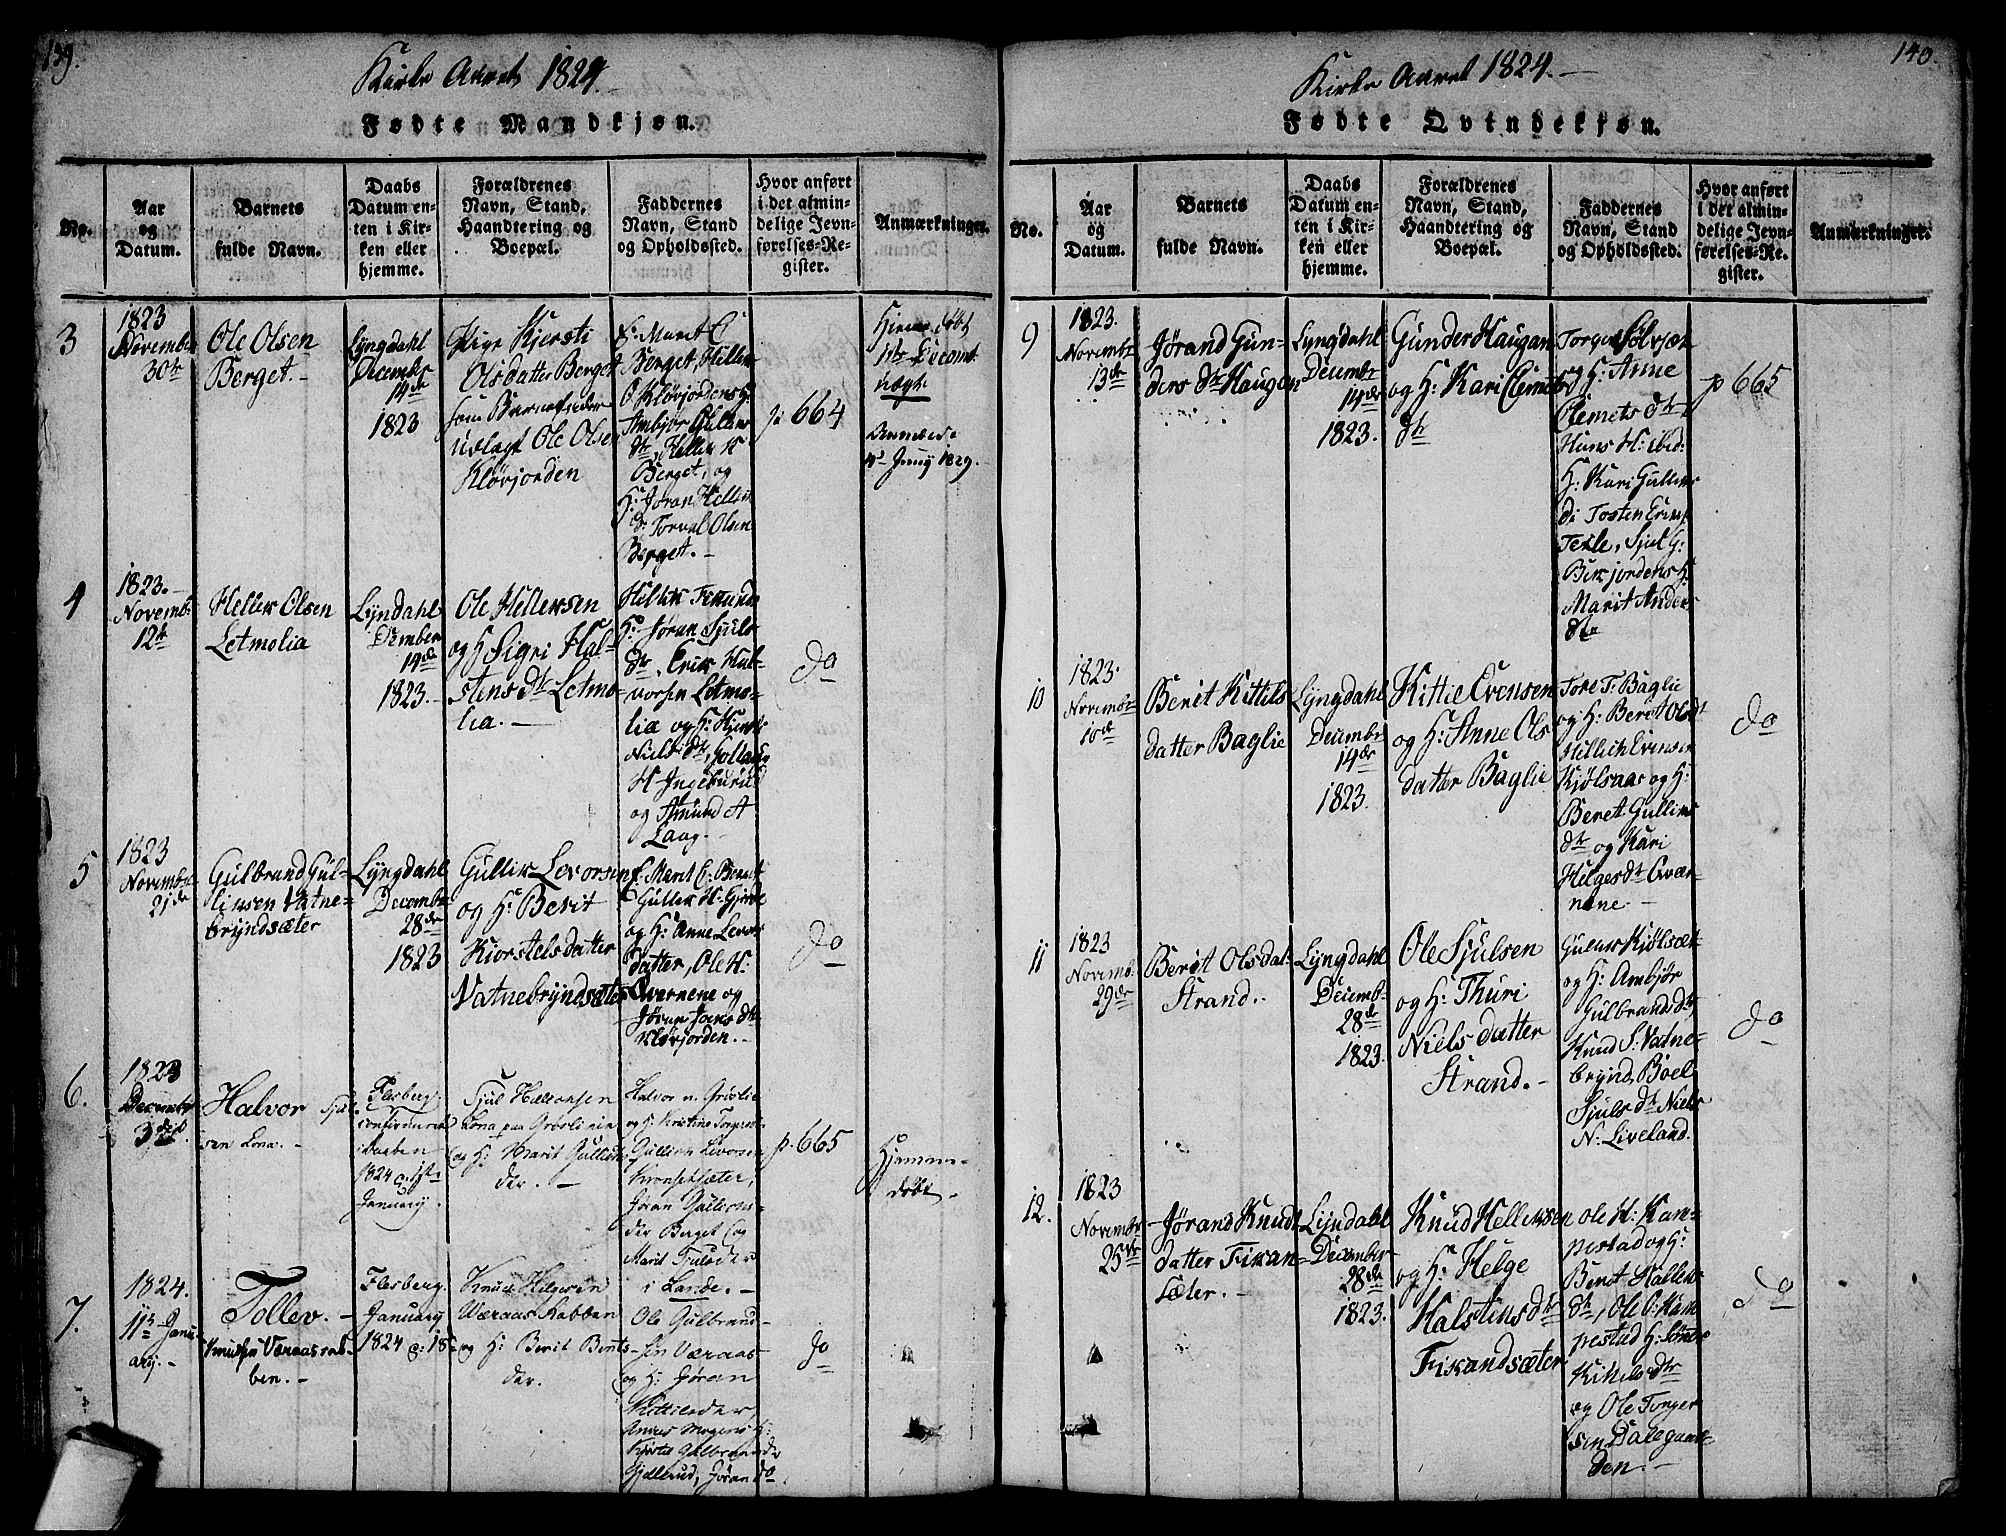 139.
Kirke Aaret 1824.
Fødte Mandkjøn.
No.
Aar
og
Datum.
Barnets
fulde Navn.
Daabs
Datum en-
ten i Kir-
ken eller
hjemme.
Forældrenes
Navn, Stand,
Haandtering og
Boepæl.
Faddernes
Navn, Stand
og Opholdssted.
Hvor anført
i det almin-
delige Jevn-
førelses-Re-
gister.
Anmærkninger.
3
1823
November
30te
Ole Olsen
Berget.-
Lyngdahl
Decembr
14de
1823
Pige Kiersti
Olsdatter Berget
som Barnefader
udlagt Ole Olsen
Kløvjorden
Berget, Hellек
O Kløvjordens H:
Ambjør
Berget, og
H: Jøran
Torval Olsen
Berget.-
p 664
Hjemmedøbt
4
1823.-
Novembr
12te
Hellek Olsen
Letmolia
Lyndahl
Dcember
14de
1823.-
Ole Hellexsen
og H Sigri Hal-
stens dtr Letmo-
lia.-
H: Jøran Sjuls
dtr, Erik Hal-
vorsen Letmo-
lia og H:
Niels dtr,
H- Ingeburud
og Amund A
Laag.-
do
5
1823
Novembr
21de
Gulbrand Gul-
liksen Vatne-
bryndsæter
Lyngdahl
Decembr
28de
1823
Gullik Levorsen
og H: Berit
Kiorstelsdatter
Vatnebryndsæter
og H: Anne Levors
datter, Ole H:
Qvernene og
Kløvjorden.-
do
6.
1823
December
3die
Halvor Sjul-
sen Lona.-
Flesberg
confirmeret
i Daaben
1824 d. 1ste
January.
Sjul Halvorsen
Lona paa Grøslien
og H: Marit Gulliks-
der.-
Halvor
og H: Kristine
Gullion Levorsen
Jøran Gullions-
der Berget og
Marit
i Lande.-
p. 665
Hjemme-
døbt-
7.
1824.
11te Janu-
ary.-
Tollev.-
Knudsen Væraasrab-
ben.-
Flesberg
January
1824 d: 18-
Knud Helgesen
Væraas Rabben
og H: Berit Bents-
der.
Ole Gulbrand-
sen Væraas-
og H: Jøran
Kittilsder,
Gulbrandsder
Gjellerud, Jøran do
do
140.
Kirke Aaret 1824.-
Fødte Qvindekjøn.
No.
Aar
og
Datum.
Barnets
fulde Navn.
Daabs
Datum en-
ten i Kir-
ken eller
hjemme.
Forældrenes
Navn, Stand,
Haandtering og
Boepæl.
Faddernes
Navn, Stand
og Opholdssted.
Hvor anført
i det almin-
delige Jevn-
førelses-Re-
gister.
Anmærkninger.
9
1823.
Novembr
13de
Jørand Gun-
ders dtr Haugen
Lyngdahl
Decembr
14de
1823.
Gunder Haugen
og H: Kari Clemets
dtr
og H: Anne
Clemets dtr
Hans H: ibid:
H: Kari Gulliks
d: Tosten
Sjul G:
Marit Anders
dtr
p 665
10
1823.
Novembr
10de
Berit Kittils
datter Baglie
Lyngdahl
Decembr
14de
1823.
Kittil Evensen
og H: Anne Ols
datter Baglie
Tore T: Baglie
og H: Berit Olsdt
Kjølsaas og H:
Beret Gulliks
dtr og Kari
Helgesdtr Qvær-
nene.-
do
11
1823
Novemb.
29de
Berit Olsdat-
Strand.
Lyngdahl
Decemb-
28de
1823.
Ole Sjulsen
og H: Thuri
Nielsdatter
Strand.-
og H: Ambjør
Gulbrandsdtr,
Knud S: Vatne-
brynd, Boel
Sjuls dtr Niels
N: Liveland.
do
12.
1823
Novembr
25de
Jørand Knudt
datter Fikan-
sæter.-
Lyndahl
December
28de
1823.
Knud Hellexsen
og H: Helge
Halstensdtr
Fikandsæter
Ole H: Kam-
pestad og H:
Berit Hallens
dtr, Ole O: Kam
pestad H:
Kitils dtr
og Ole Torger
sen Dalegaar-
den.-
do